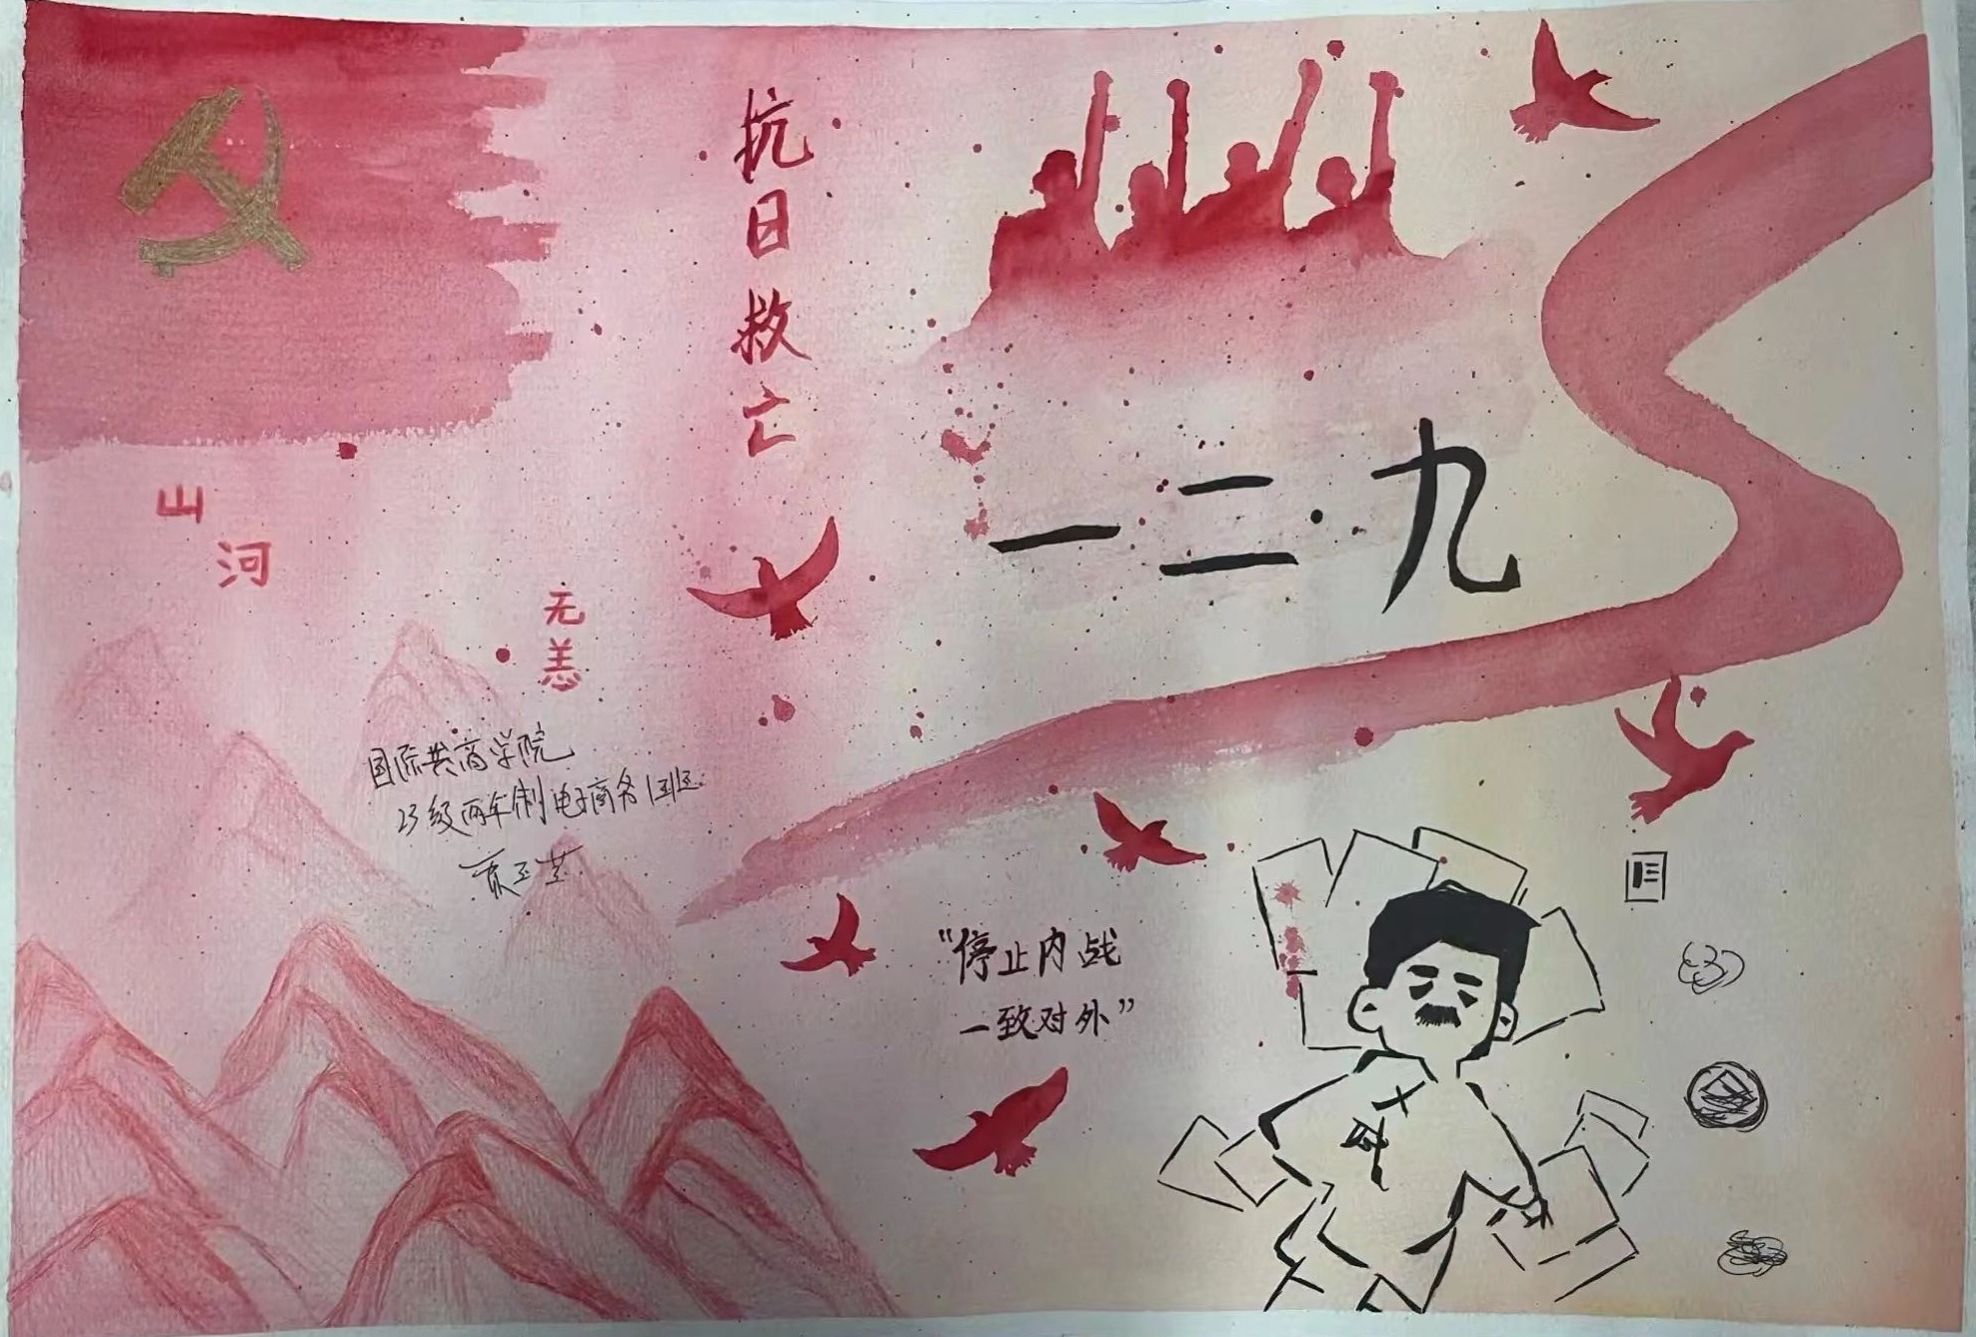 抗日救亡
一二·九
山河
无恙
国际共商学院
23级两年制电子商务1班
"停止内战
一致对外"